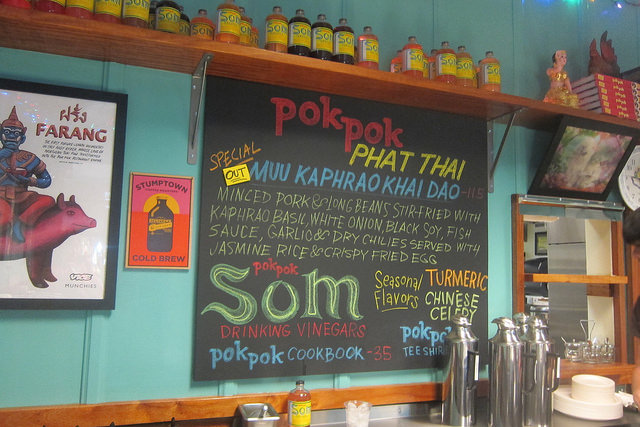 ฝรั่ง
FARANG
VICE
MUNCHIES
STUMPTOWN
COLD BREW
pokpok
PHAT THAI
SPECIAL
OUT
MUU KAPHRAO KHAI DAO -11.5
MINCED PORK & LONG BEANS STIR-FRIED WITH
KAPHRAO BASIL, WHITE ONION BLACK SOY, FISH
SAUCE, GARLIC & DRY CHILIES SERVED WITH
JASMINE RICE & CRISPY FRIED EGG
pokpok
Som
DRINKING VINEGARS
Seasonal
Flavors
TURMERIC
CHINESE
CELERY
pokpok COOKBOOK -35
pokpo
TEE SHIR
SOM